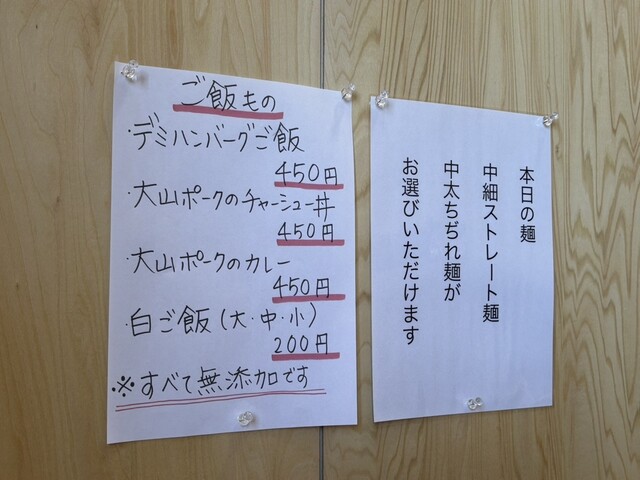 ご飯もの
・デミハンバーグご飯
450円
・大山ポークのチャーシュー丼
450円
・大山ポークのカレー
450円
・白ご飯(大・中・小)
200円
※すべて無添加です
本日の麺
中細ストレート麺
中太ちぢれ麺が
お選びいただけます